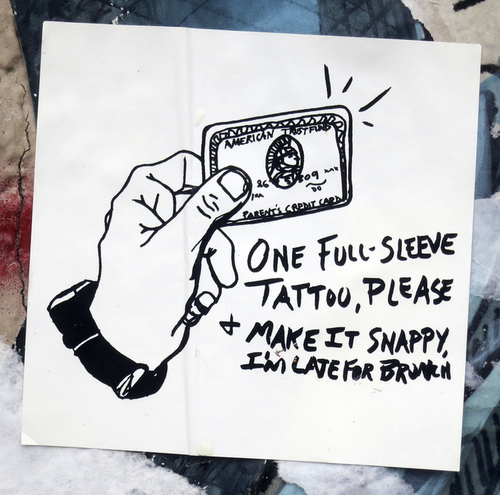 AMERICAN TRUST FUND
PARENT'S CREDIT CARD
ONE FULL-SLEEVE
TATTOO, PLEASE
+ MAKE IT SNAPPY,
I'M LATE FOR BRUNCH